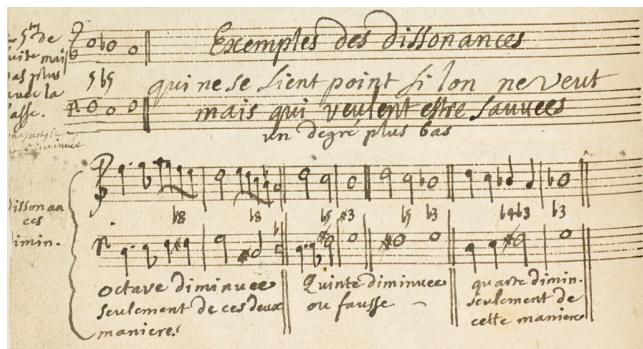 5tes de
suite mais
pas plus
avec la
basse.
5 b5
Exemples des dissonances
qui ne se lient point si lon ne veut
mais qui veulent estre sauvees
un degré plus bas
dissonan
ces
dimin.
b8 b8 b5 #3 b5 b3 b4 b3 b3
octave diminuee
seulement de ces deux
manieres
Quinte diminuee
ou fausse
quarte dimin.
seulement de
cette maniere